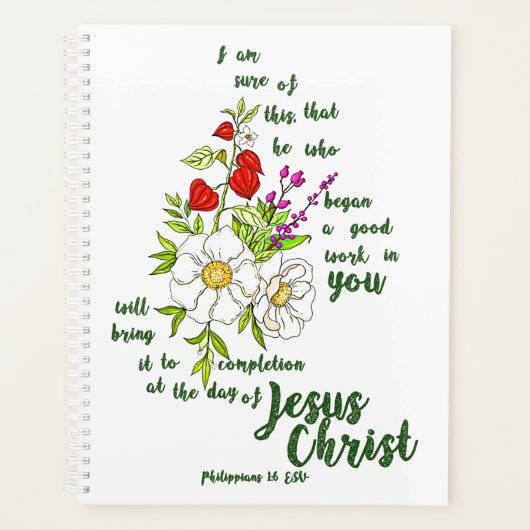 I am
sure of
this, that
he who
began
a good
work in
you
will
bring
it to completion
at the day of
Jesus
Christ
Philippians 1:6 ESV